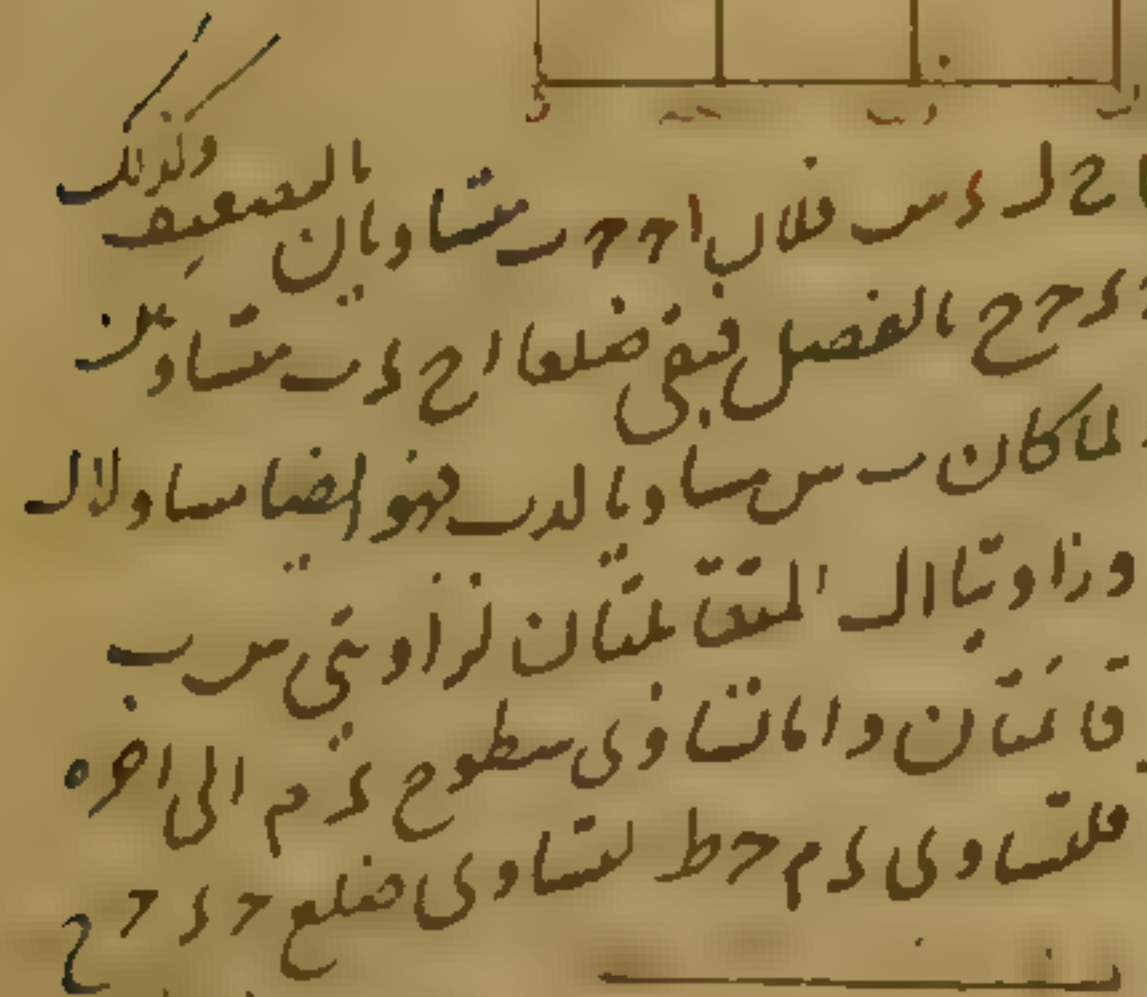 ح ل ء س فلان ا ح ح ب متساويان بالتنصيف وكذلك
ء ح ح بالفصل فبقى ضلعا ا ح ء ب متساويين
لما كان ب س مساويا لدب فهو ايضا مساو لال
وزاويتا ال المتقابلتان لزاويتي س ب
قائمتان واما تساوى سطوح ء م الى اخره
فلتساوى ء م ح ط لتساوى ضلع ح ء ح ح